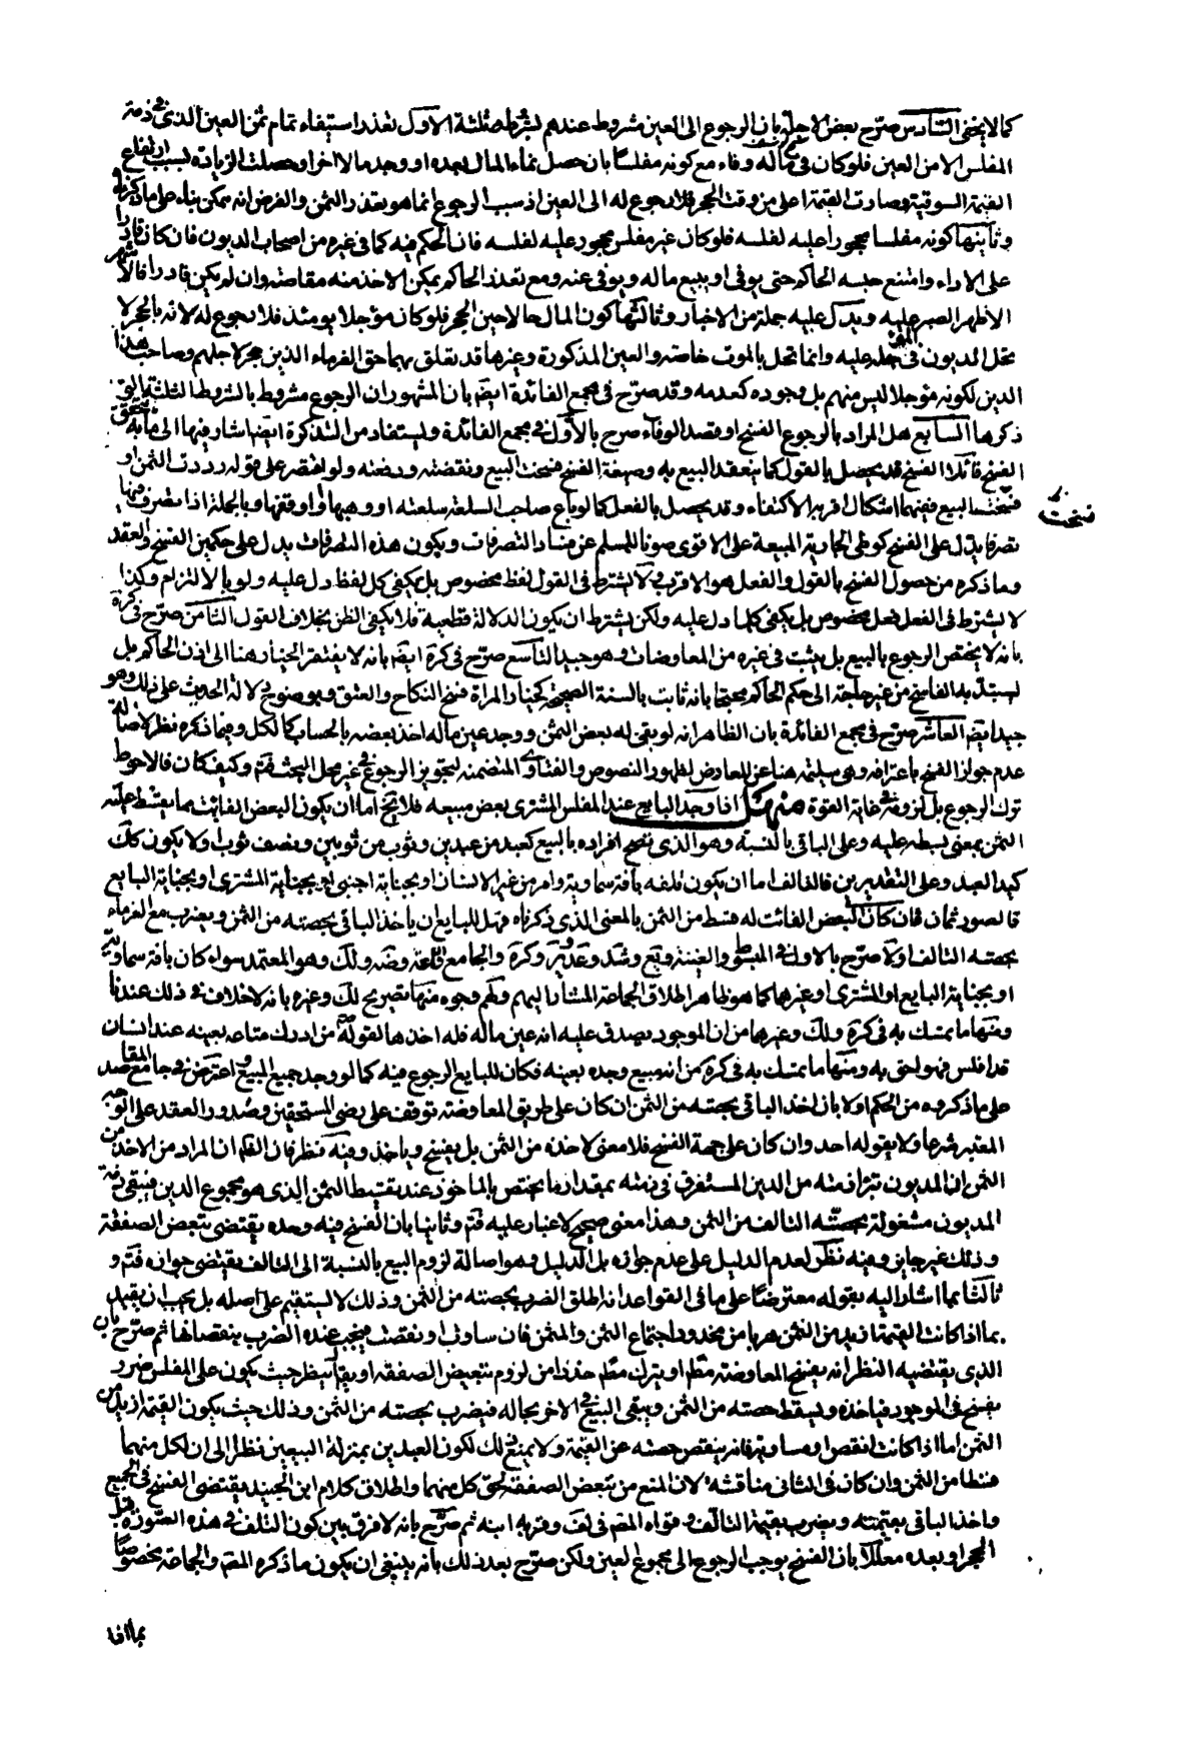 كما لا يخفى السّادس صرّح بعض الاجلة بان الرجوع الى العين مشروط عندهم بشروط ثلثة الاوّل تعذر استيفاء تمام ثمن العين الذى فى ذمة
المفلس الا من العين فلو كان فى ماله وفاء مع كونه مفلسا بان حصل نماء المال بعده او وجد مالا اخر او حصلت الزيادة بسبب ارتفاع
القيمة السوقية وصارت القيمة اعلى من وقت الحجر فلا رجوع له الى العين اذ سبب الرجوع انما هو تعذر الثمن والفرض انه ممكن بناء على ما ذكرناه
وثانيها كونه مفلسا محجورا عليه لفلسه فلو كان غير مفلس محجور عليه لفلسه فان الحكم فيه كما فى غيره من اصحاب الديون فان كان قادرا
على الاداء وامتنع حبسه الحاكم حتى يوفى او يبيع ماله ويوفى عنه ومع تعذر الحاكم يمكن الاخذ منه مقاصة وان لم يكن قادرا فالاشهر
الاظهر الصبر عليه ويدل عليه جملة من الاخبار وثالثها كون المال حالا حين الحجر فلو كان مؤجلا يومئذ فلا رجوع له لانه بالحجر لا
تحل الديون المؤجلة عليه وانما تحل بالموت خاصة والعين المذكورة وغيرها قد تعلق بهما حق الغرماء الذين حجر لاجلهم وصاحب هذا
الدين لكونه مؤجلا ليس منهم بل وجوده كعدمه وقد صرّح فى مجمع الفائدة ايضا بان المشهور ان الرجوع مشروط بالشروط الثلثة التى
ذكرها السّابع هل المراد بالرجوع الفسخ او قصد الوفاء صرح بالاوّل فى مجمع الفائدة ويستفاد من التذكرة ايضا اشار فيها الى ما به يتحقق
الفسخ قائلا الفسخ قد يحصل بالقول كما ينعقد البيع به وصيغة الفسخ فسخت البيع ونقضته ورفعته ولو اقتصر على قوله رددت الثمن او
فسخت البيع فيهما اشكال اقربه الاكتفاء وقد يحصل بالفعل كما لو باع صاحب السلعة سلعته او وهبها او وقفها وبالجملة اذا تصرف فيها
فسخت
تصرفا يدل على الفسخ كوطى الجارية المبيعة على الاقوى صونا للمسلم عن فساد التصرفات ويكون هذه التصرفات يدل على حكمين الفسخ والعقد
وما ذكره من حصول الفسخ بالقول والفعل هو الاقرب ولا يشترط فى القول لفظ مخصوص بل يكفى كل لفظ دل عليه ولو بالالتزام وكذا
لا يشترط فى الفعل فعل مخصوص بل يكفى كلما دل عليه ولكن يشترط ان يكون الدلالة قطعية فلا يكفى الظن بخلاف القول الثّامن صرّح فى كرة
بانه لا يختص الرجوع بالبيع بل يثبت فى غيره من المعاوضات وهو جيد التاسع صرّح فى كرة ايضا بانه لا يفتقر الخيار هنا الى اذن الحاكم بل
يستبد به الفاسخ من غير حاجة الى حكم الحاكم محتجا بانه ثابت بالسنة الصحيحة كخيار المراة فسخ النكاح والعتق وبوضوح دلالة الحديث على ذلك وهو
جيد ايضا العاشر صرّح فى مجمع الفائدة بان الظاهر انه لو بقى له بعض الثمن ووجد عين ماله اخذ بعضه بالحساب كالكل وفيما ذكره نظر لاصالة
عدم جواز الفسخ باعترافه وهى سليمة هنا عن المعارض لظهور النصوص والفتاوى المتضمنة لتجويز الرجوع فى غير محل البحث فتم وكيف كان فالاحوط
ترك الرجوع بل لزومه فى غاية القوة منهل اذا وجد البايع عند المفلس المشترى بعض مبيعه فلا يخ اما ان يكون البعض الفائت مما يقسط عليه
الثمن بمعنى بسطه عليه وعلى الباقى بالنسبة وهو الذى يصح افراده بالبيع كعبد من عبدين وثوب من ثوبين ونصف ثوب اولا يكون كك
كيد العبد وعلى التقديرين فالتالف اما ان يكون تلفه بافة سماوية وامر من غير الانسان او بجناية اجنبى او بجناية المشترى او بجناية البايع
فالصور ثمان فان كان البعض الفائت له قسط من الثمن بالمعنى الذى ذكرناه فهل للبايع ان ياخذ الباقى بحصته من الثمن ويضرب مع الغرماء
بحصة التالف اولا صرّح بالاول فى المبسوط والغنية ويع وشد وعد وير وكرة والجامع ولعة وضه ولك وهو المعتمد سواء كان بافة سماوية
او بجناية البايع او المشترى او غيرها كما هو ظاهر اطلاق الجماعة المشار اليهم ولهم وجوه منها تصريح لك وغيره بانه لا خلاف فى ذلك عندنا
ومنها ما تمسك به فى كرة ولك وغيرها من ان الموجود يصدق عليه انه عين ماله فله اخذها لقوله من ادرك متاعه بعينه عند انسان
قد افلس فهو احق به ومنها ما تمسك به فى كرة من انه مبيع وجده بعينه فكان للبايع الرجوع فيه كما لو وجد جميع المبيع واعترض فى جامع المقاصد
على ما ذكروه من الحكم اولا بان اخذ الباقى بحصته من الثمن ان كان على طريق المعاوضة توقف على رضى المستحقين وصدور العقد على الوجه
المعتبر شرعا ولا يقوله احد وان كان على جهة الفسخ فلا معنى لاخذه من الثمن بل يفسخ وياخذ وفيه نظر فان الظم ان المراد من الاخذ من
الثمن ان المديون تبرا ذمته من الدين المستغرق فى ذمته بمقدار ما يختص بالماخوذ عند تقسيط الثمن الذى هو مجموع الدين فيبقى ذمة
المديون مشغولة بحصة التالف من الثمن وهذا معنى صحيح لا غبار عليه فتم وثانيا بان الفسخ فيه وحده يقتضى تبعض الصفقة
وذلك غير جايز وفيه نظر لعدم الدليل على عدم جوازه بل الدليل وهو اصالة لزوم البيع بالنسبة الى التالف يقتضى جوازه فتم و
ثالثا بما اشار اليه بقوله معترضا على ما فى القواعد انه اطلق الضرب بحصته من الثمن وذلك لا يستقيم على اصله بل يجب ان يقيد
بما اذا كانت القيمة ازيد من الثمن هربا من محذور اجتماع الثمن والمثمن فان ساوت او نقصت فيجب عنده الضرب بنقصانها ثم صرّح بان
الذى يقتضيه النظر انه يفسخ المعاوضة مطم او يترك مطم حذرا من لزوم تبعيض الصفقة او يقال ينظر حيث يكون على المفلس ضرر
يفسخ فى الموجود فياخذه ويسقط حصته من الثمن ويبقى البيع فى الاخر بحاله فيضرب بحصته من الثمن وذلك حيث يكون القيمة ازيد من
الثمن اما اذا كانت انقص او مساوية فانه ينقص حصته عن القيمة ولا يمنع ذلك لكون العبدين بمنزلة المبيعين نظرا الى ان لكل منهما
قسطا من الثمن وان كان فى الثانى مناقشة لان المنع من تبعض الصفقة لحق كل منهما واطلاق كلام ابن الجنيد يقتضى الفسخ فى الجميع
واخذ الباقى بقيمته ويضرب بقيمة التالف وقواه المصم فى لف وقربه ابنه ثم صرّح بانه لا فرق بين كون التلف فى هذه الصورة قبل
الحجر او بعده معللا بان الفسخ يوجب الرجوع الى مجموع العين ولكن صرّح بعد ذلك بانه ينبغى ان يكون ما ذكره المصم والجماعة مخصوصا
بما اذا